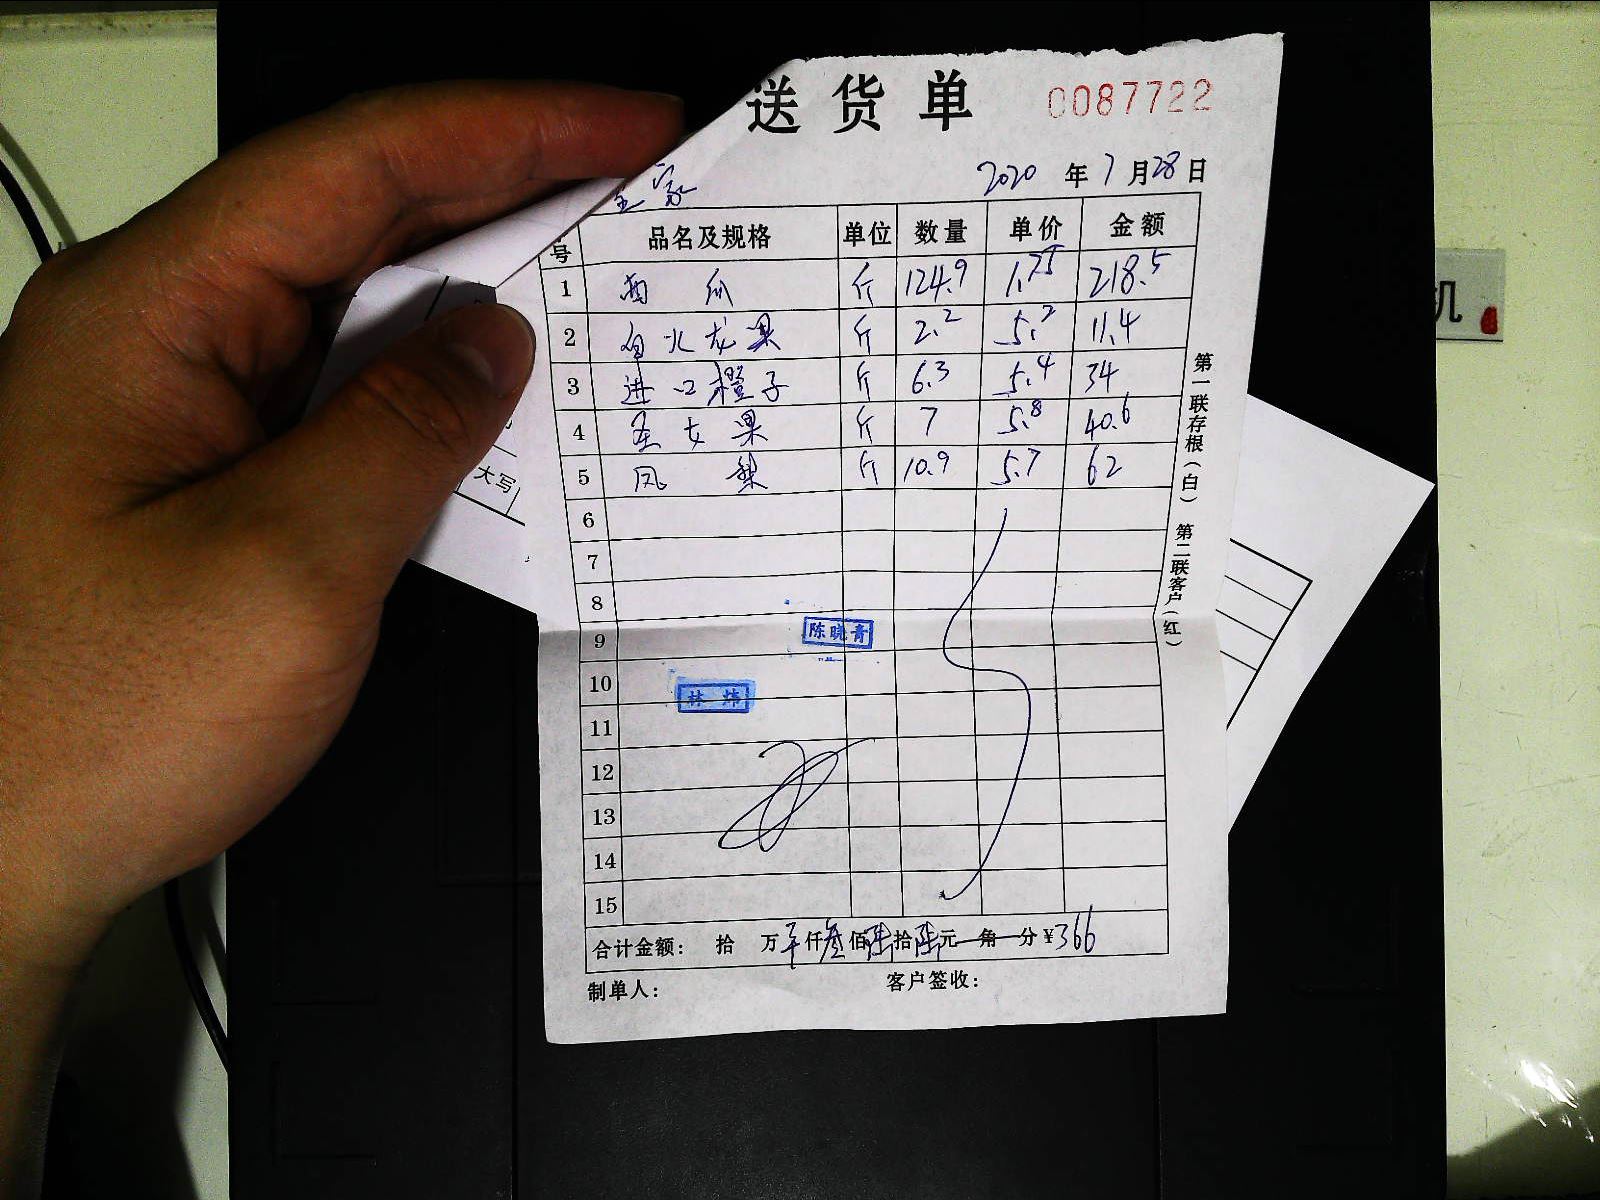 送货单 0087722
2020 年 7 月 28 日
号 品名及规格 单位 数量 单价 金额
1 西瓜 斤 124.9 1.75 218.5
2 白火龙果 斤 2.2 5.2 11.4
3 进口橙子 斤 6.3 5.4 34
4 圣女果 斤 7 5.8 40.6
5 凤梨 斤 10.9 5.7 62
6
7
8
9 陈晓青
10
林炜
11
12
13
14
15
合计金额： 拾 万 仟叁佰陆拾陆元 角 分 ¥366
制单人： 客户签收：
第一联存根（白） 第二联客户（红）
大写
机